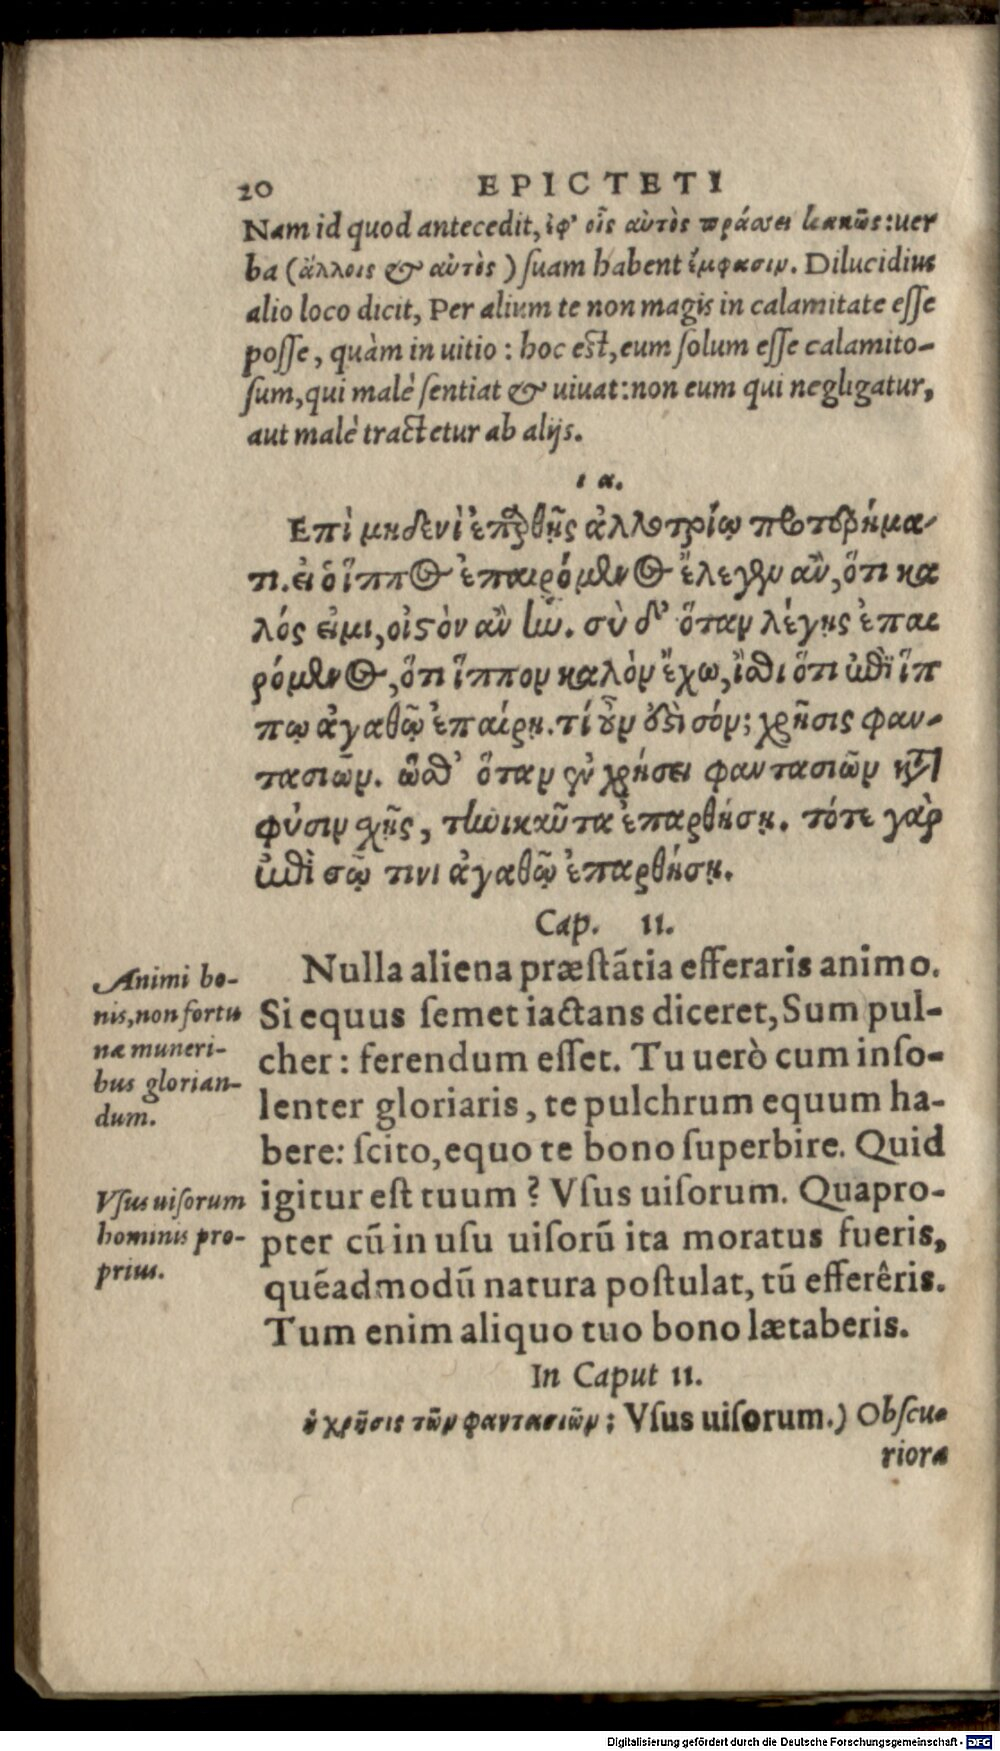 20 EPICTETI
Nam id quod antecedit, ἐφ' οἷς αὐτὸς πράσσει κακῶς: uer
ba (ἄλλοις & αὐτὸς) ſuam habent ἔμφασιν. Dilucidius
alio loco dicit, Per alium te non magis in calamitate eſſe
poſſe, quàm in uitio: hoc eſt, eum ſolum eſſe calamito-
ſum, qui malè ſentiat & uiuat: non eum qui negligatur,
aut malè tractetur ab alijs.
ια.
Επὶ μηδενὶ ἐπαρθῇς ἀλλοτρίῳ προτερήμα-
τι. εἰ ὁ ἵππος ἐπαιρόμενος ἔλεγεν ἂν, ὅτι κα
λός εἰμι, οἰστὸν ἂν ἦν. σὺ δ' ὅταν λέγῃς ἐπαι
ρόμενος, ὅτι ἵππον καλὸν ἔχω, ἴσθι ὅτι ἐπὶ ἵπ
πῳ ἀγαθῷ ἐπαίρῃ. τί οὖν ἐστὶ σόν; χρῆσις φαν-
τασιῶν. ὥσθ' ὅταν ἐν χρήσει φαντασιῶν κατὰ
φύσιν σχῇς, τηνικαῦτα ἐπαρθήσῃ. τότε γὰρ
ἐπὶ σῷ τινι ἀγαθῷ ἐπαρθήσῃ.
Cap. 11.
Nulla aliena præſtãtia efferaris animo.
Si equus ſemet iactans diceret, Sum pul-
cher: ferendum eſſet. Tu uerò cum inſo-
lenter gloriaris, te pulchrum equum ha-
bere: ſcito, equo te bono ſuperbire. Quid
igitur eſt tuum? Vſus uiſorum. Quapro-
pter cũ in uſu uiſorũ ita moratus fueris,
quẽadmodũ natura poſtulat, tũ efferêris.
Tum enim aliquo tuo bono lætaberis.
Animi bo-
nis, non fortu
næ muneri-
bus glorian-
dum.
Vſus uiſorum
hominis pro-
prius.
In Caput 11.
ἡ χρῆσις τῶν φαντασιῶν; Vſus uiſorum.) Obſcu-
riora
Digitalisierung gefördert durch die Deutsche Forschungsgemeinschaft - DFG